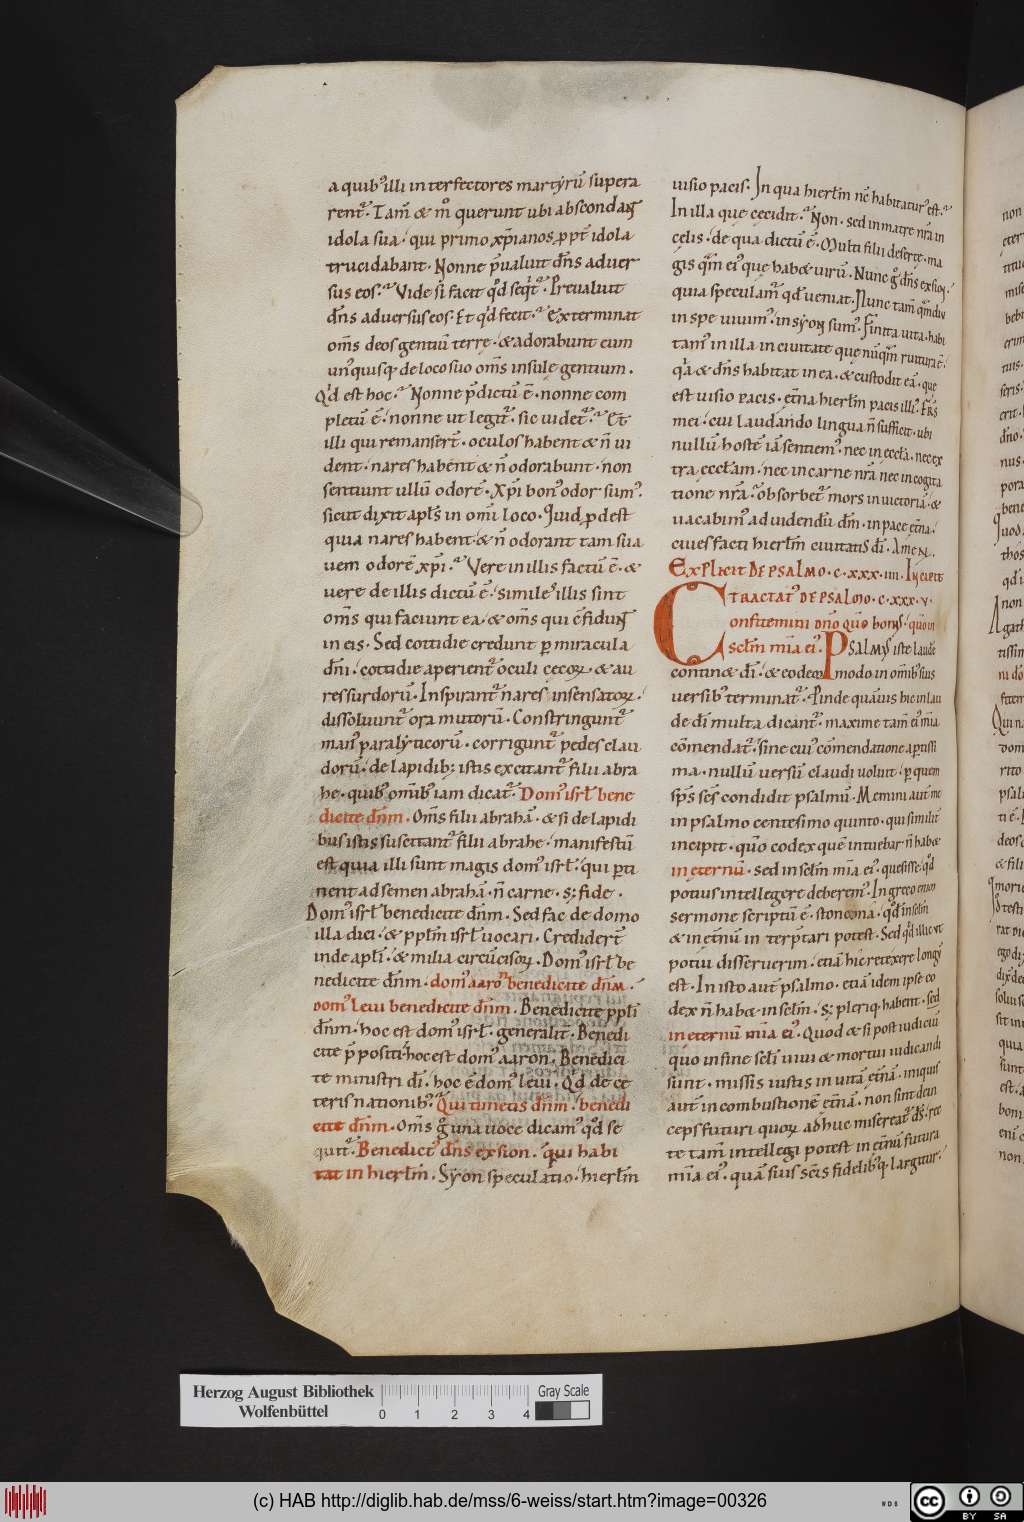 a quib᷒ illi interfectores martyrū supera
rent᷑. Tam̄ & m̊ querunt ubi abscondant
idola sua. qui primo xp̄ianos ꝓpt̄ idola
trucidabant. Nonne p̄ualuit dn̄s aduer
sus eos? Vide si facit qd̄ seqt᷑. Preualuit
dn̄s aduersus eos. Et qd̄ fecit? Exterminat
om̄s deos gentiū terrę. & adorabunt eum
un᷒quisq; de loco suo om̄s insulę gentium.
Qd̄ est hoc? Nonne p̄dictū ē. nonne com
pletū ē. nonne ut legit᷑. sic uidet᷑? Et
illi qui remanser̄t. oculos habent & n̄ ui
dent. nares habent & n̄ odorabunt. non
sentiunt ullū odorē. Xp̄i bon᷒ odor sum᷒.
sicut dixit apl̄s in omi loco. Quid ꝓdest
quia nares habent & n̄ odorant tam sua
uem odorē xp̄i? Vere in illis factū ē. &
uere de illis dictū ē. similes illis sint
om̄s qui faciunt ea. & om̄s qui cfidunt
in eis. Sed cottidie credunt ꝑ miracula
dn̄i. cottidie aperient᷑ oculi cecoꝝ. & au
res surdorū. Inspirant᷑ nares insensatoꝝ.
dissoluunt᷑ ora mutorū. Constringunt᷑
man᷒ paralyticorū. corrigunt᷑ pedes clau
dorū. de lapidib; istis excitant᷑ filii abra
hę. quib᷒ omib᷒ iam dicat᷑. Dom᷒ isrl̄ bene
dicite dn̄m. Om̄s filii abrahā. & si de lapidi
bus istis suscitant᷑ filii abrahę. manifestū
est quia illi sunt magis dom᷒ isrl̄. qui ꝑti
nent ad semen abrahā. n̄ carne. s; fide.
Dom᷒ isrl̄ benedicite dn̄m. Sed fac de domo
illa dici. & ppl̄m isrl̄ uocari. Credider̄t
inde apl̄i. & milia circūcisoꝝ. Dom᷒ isrl̄ be
nedicite dn̄m. dom᷒ aaron benedicite dn̄m.
dom᷒ leui benedicite dn̄m. Benedicite ppl̄i
dn̄m. hoc est dom᷒ isrl̄. generalit̄. Benedi
cite p̄positi. hoc est dom᷒ aaron. Benedici
te ministri dī. hoc ē dom᷒ leui. Qd̄ de ce
teris nationib᷒? Qui timetis dn̄m. benedi
cite dn̄m. Om̄s g̊ una uoce dicam᷒ qd̄ se
quit᷑. Benedict᷒ dn̄s ex sion. qui habi
tat in hierl̄m. Syon speculatio. hierl̄m
uisio pacis. In qua hierl̄m nc̄ habitatur᷒ est?
In illa que cecidit? Non. sed in matre nr̄a in
celis. de qua dictū ē. Multi filii desertę. ma
gis qm̄ ei᷒ que hab& uirū. Nunc g̊ dn̄s ex sion.
quia speculam᷑ qd̄ ueniat. Nunc tam̄ qm̄diu
in spe uiuim᷒. in syon sum᷒. Finita uita. habi
tam᷒ in illa in ciuitate que nūqm̄ ruitura ē.
qa & dn̄s habitat in ea. & custodit eā. que
est uisio pacis. etn̄a hierl̄m pacis illi᷒. Fr̄s
mei. cui laudando lingua n̄ sufficit. ubi
nullū hostē iā sentiem᷒. nec in eccl̄a. nec ex
tra eccl̄am. nec in carne nr̄a nec in cogita
tione nr̄a. obsorbet᷑ mors in uictoriā. &
uacabim᷒ ad uidendū dm̄. in pace etn̄a.
ciues facti hierl̄m ciuitatis dī. Amen.
Explicit de psalmo. c.xxx.iiii. Incipit
tractat᷒ de psalmo. c.xxx.v.
Confitemini dn̄o qūo bonus. qūo in
secl̄m mīa ei᷒. Psalmus iste laudē
contin& dī. & eodem modo in omib᷒ suis
uersib᷒ terminat᷑. Pinde quāuis hic in lau
de dī multa dicant᷑. maxime tam̄ ei᷒ mīa
cōmendat᷑. sine cui᷒ cōmendatione apertissi
ma. nullū uersū claudi uoluit. ꝑ quem
sps̄ sc̄s condidit psalmū. Memini aut̄ me
in psalmo centesimo quinto. qui similit̄
incipit. qūo codex quē intuebar n̄ hab&
in eternū. sed in secl̄m mīa ei᷒. quesisse. qd̄
potius intellegere deberem᷒. In greco enim
sermone scriptū ē. stoneona. qd̄ & in secl̄m
& in etn̄ū interp̄tari potest. Sed qd̄ illic ut
potui disseruerim. etiā hic retexere longū
est. In isto aut̄ psalmo. etiā idem ipse co
dex n̄ hab& in secl̄m. s; pleriq; habent. sed
in eternū mīa ei᷒. Quod & si post iudiciū
quo in fine secl̄i uiui & mortui iudicandi
sunt. missis iustis in uitā etn̄ā. iniquis
aut̄ in combustionē etn̄ā. non sint dein
ceps futuri quoꝝ adhuc misereat᷑ ds̄. rec
te tam̄ intellegi potest in etn̄ū futura
mīa ei᷒. quā suis sc̄is fidelib᷒q; largitur.
Herzog August Bibliothek
Wolfenbüttel
Gray Scale
0 1 2 3 4
(c) HAB http://diglib.hab.de/mss/6-weiss/start.htm?image=00326
cc BY SA